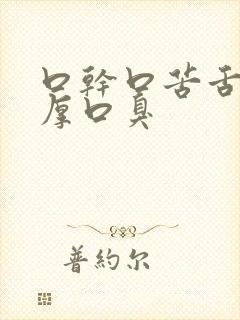 口幹口苦舌
厚口臭
普約尔